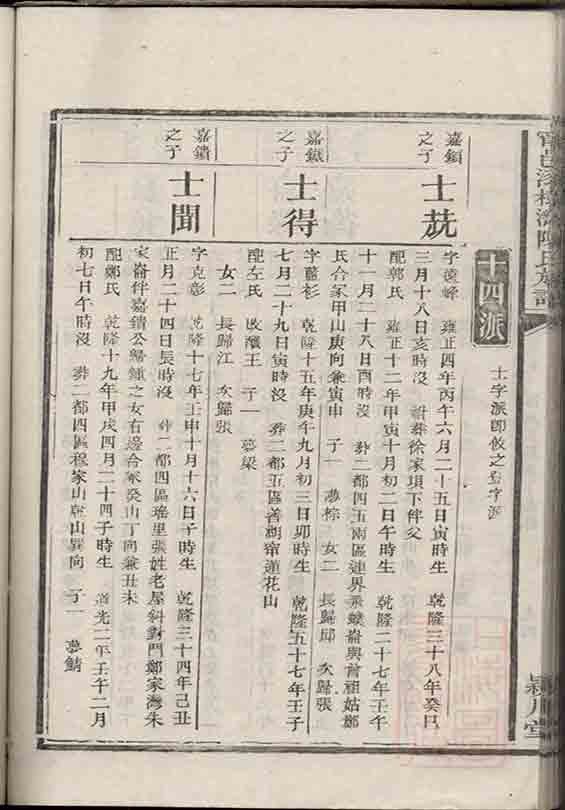 士字派即攸之登字派
十四派
嘉鎖
之子
士兟
字遠峰 雍正四年丙午六月二十五日寅時生 乾隆三十八年癸巳
三月十八日亥時沒 葬徐家項下伴父
配郭氏 雍正十二年甲寅十月初二日午時生 乾隆二十七年壬午
十一月二十八日酉時沒 葬二都四五兩區連界 崙與曾祖姑鄭
氏合冢甲山庚向兼寅申 子一 夢棕 女二 長歸邱 次歸張
嘉鐵
之子
士得
字藎衫 乾隆十五年庚午九月初三日卯時生 乾隆五十七年壬子
七月二十九日寅時沒 葬二都五區善湖帘蓮花山
配左氏 改釀王 子一 夢梁
女二 長歸江 次歸張
嘉鐼
之子
士聞
字克彰 乾隆十七年壬申十月十六日子時生 乾隆三十四年己丑
正月二十四日辰時沒 葬二都四區瑞里張姓老屋斜對門鄭家灣朱
家崙伴嘉鐼公歸鍾之女右邊合冢癸山丁向兼丑未
配鄭氏 乾隆十九年甲戌四月二十四子時生 道光二年壬午二月
初七日午時沒 葬二都四區穆家山乾山巽向 子一 夢鯖
潁川堂